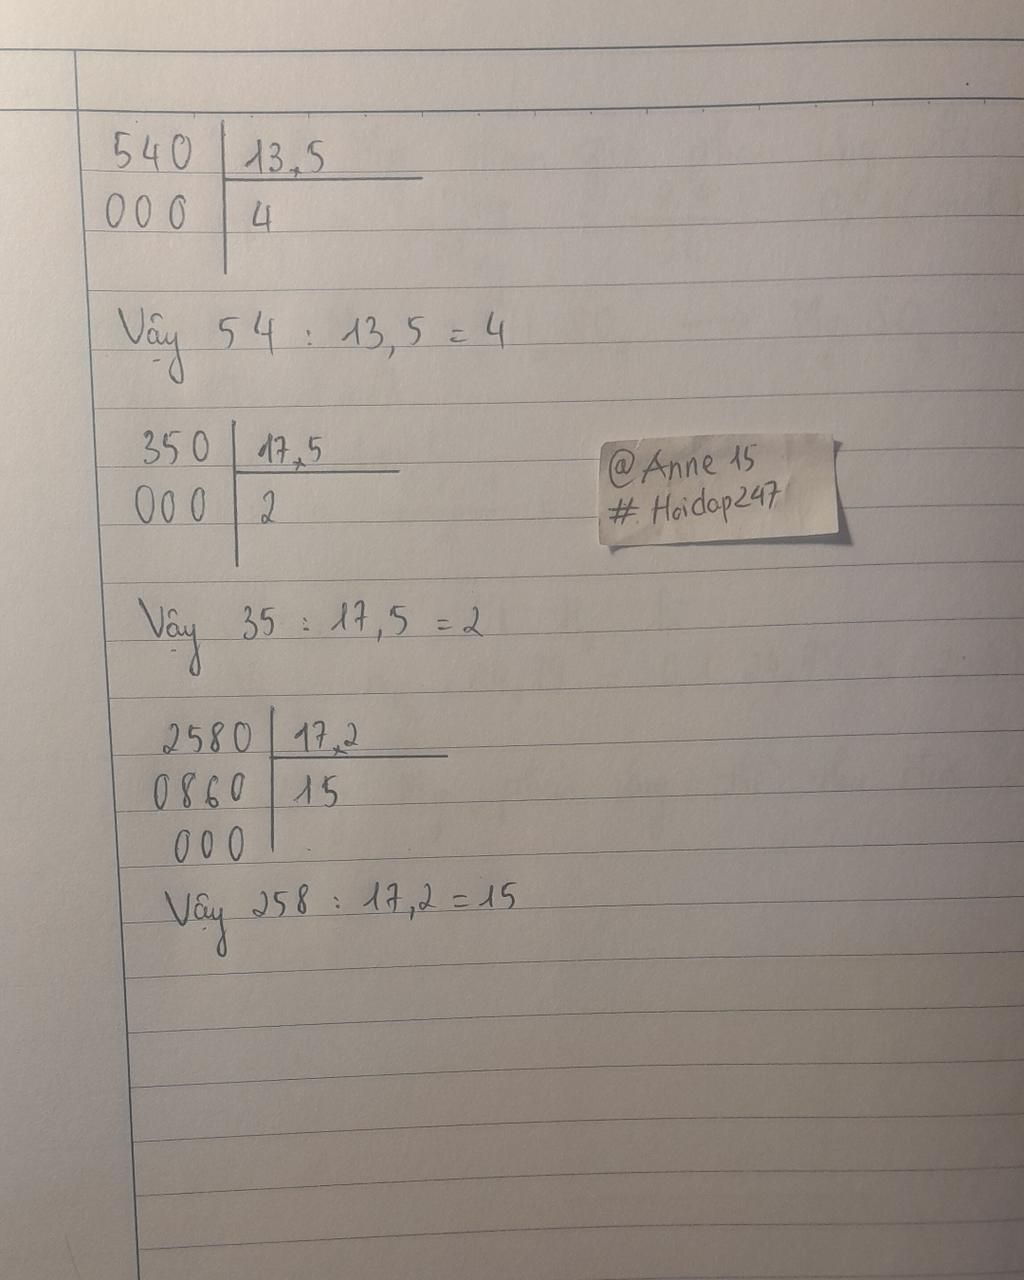 540 | 13,5
000 | 4
Vậy 54 : 13,5 = 4
350 | 17,5
000 | 2
@Anne 15
# Hoidap247
Vậy 35 : 17,5 = 2
2580 | 17,2
0860 | 15
000
Vậy 258 : 17,2 = 15